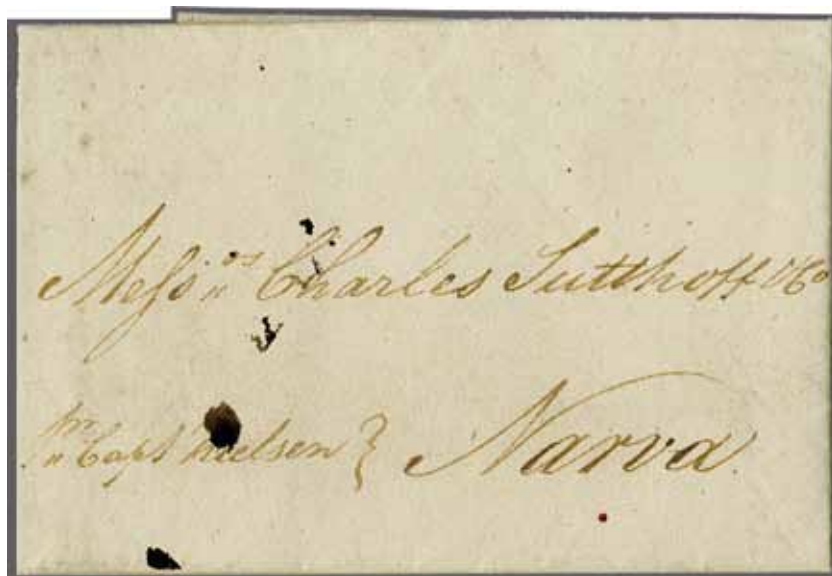 Messrs Charles Sutthoff & Co
pr Capt Neelsen } Narva